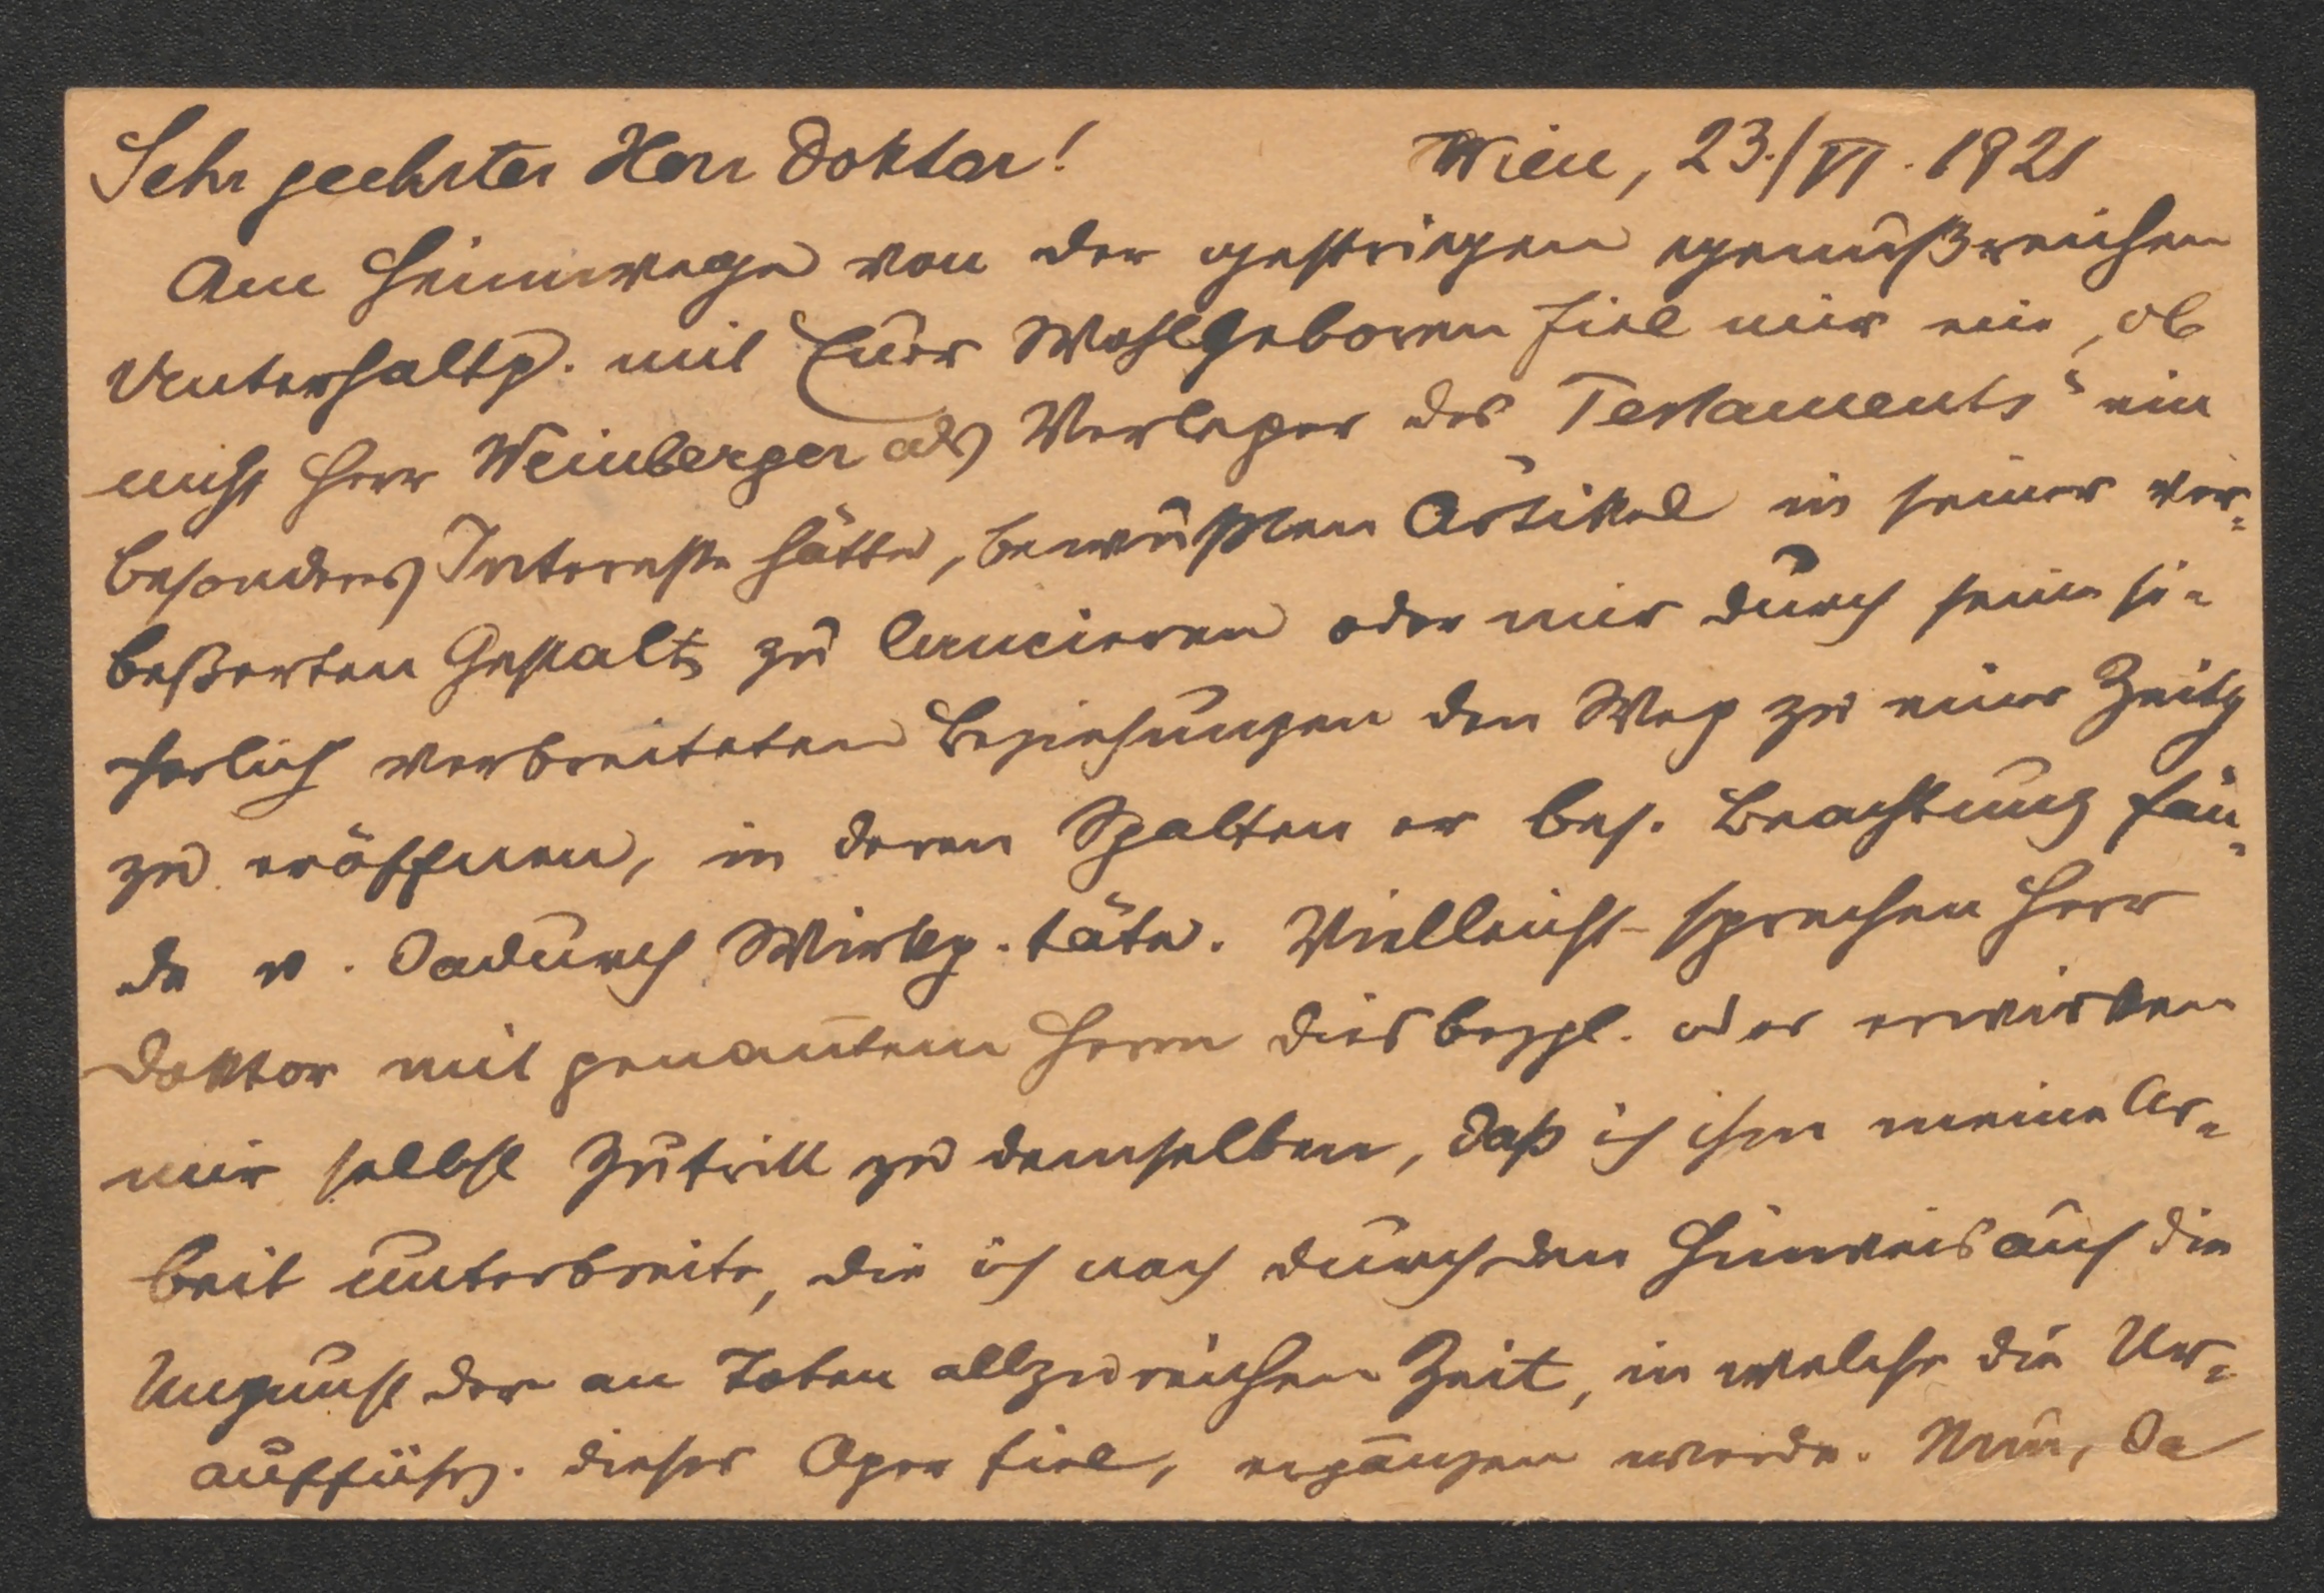 Sehr geehrter Herr Doktor! Wien, 23./VI. 1921
Am Heimwege von der gestrigen genußreichen
Unterhaltg. mit Euer Wohlgeboren fiel mir ein, ob
nicht Herr Weinberger als Verleger des „Testaments“ ein
besonderes Interesse hätte, bewußten Artikel in seiner ver-
beßerten Gestalt zu lancieren oder mir durch seine si-
cherlich verbreiteten Beziehungen den Weg zu einer Zeitg
zu eröffnen, in deren Spalten er bes. Beachtung fän-
de u. dadurch Wirkg. täte. Vielleicht sprechen Herr
Doktor mit genan̄tem Herrn diesbezgl. oder erwirken
mir selbst Zutritt zu demselben, daß ich ihm meine Ar-
beit unterbreite, die ich noch durch den Hinweis auf die
Ungunst der an Toten allzu reichen Zeit, in welche die Ur-
aufführg. dieser Oper fiel, ergänzen werde. Nun, da